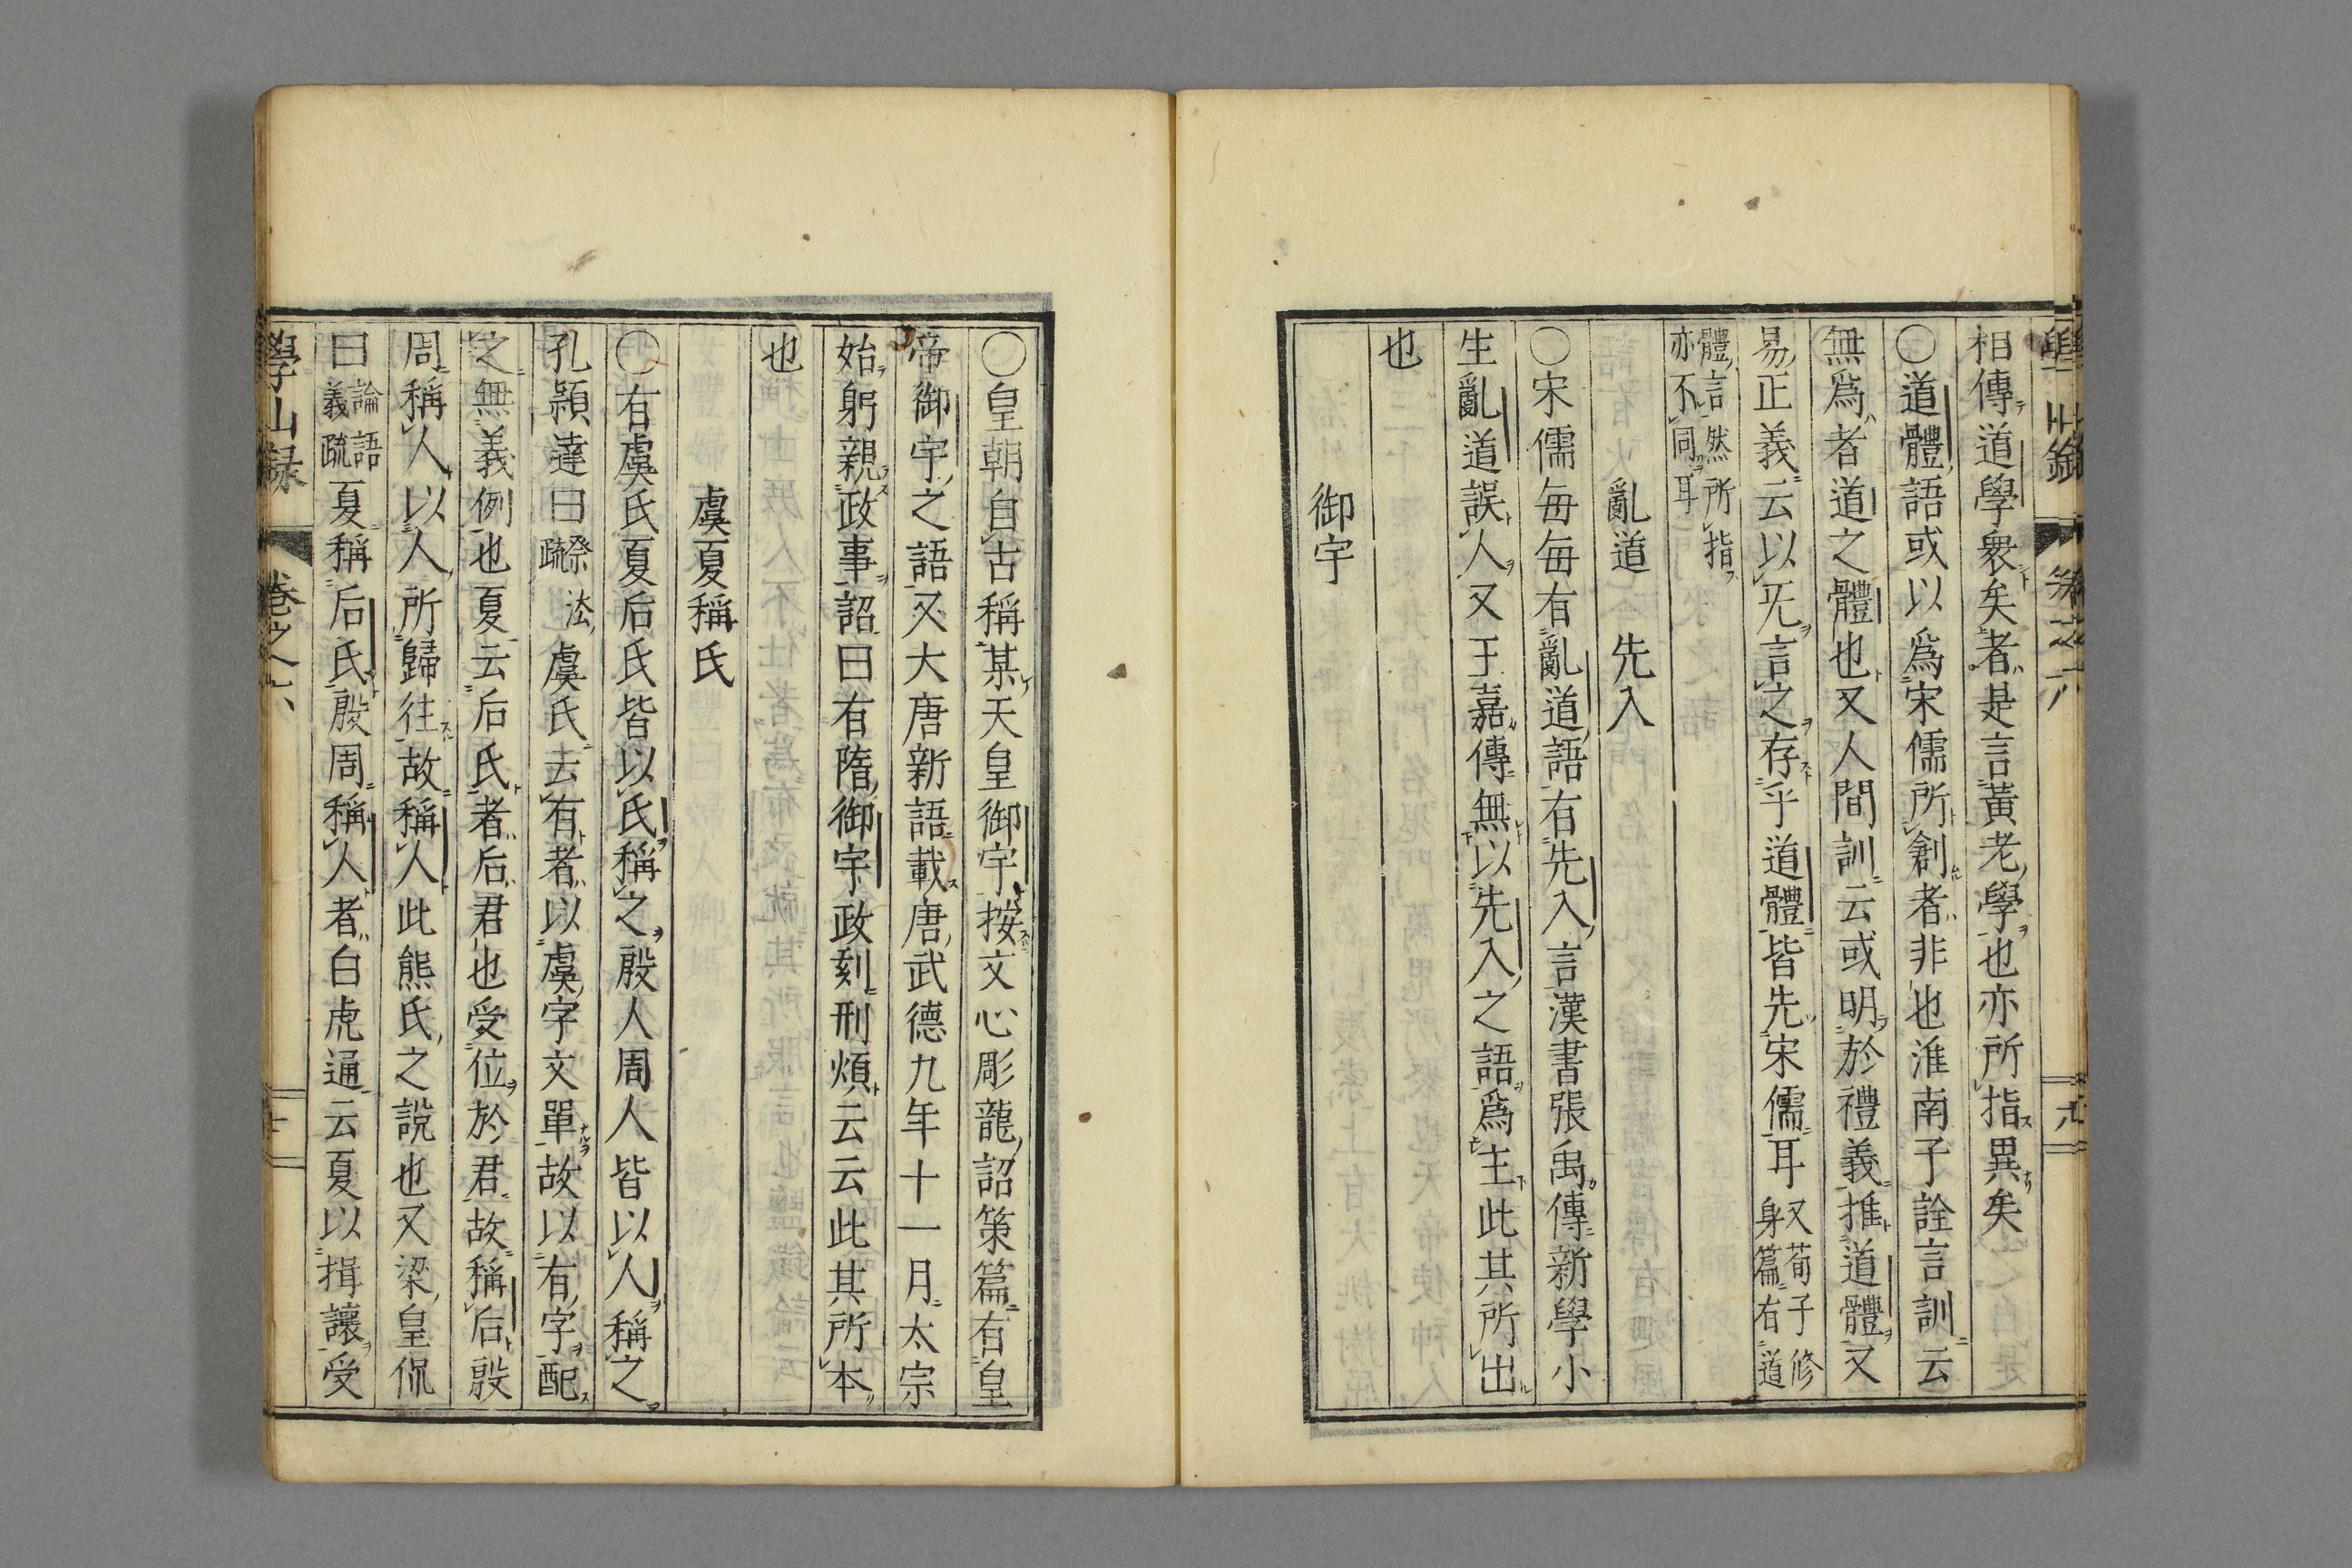 學山錄 卷之六 九
相傳道學衆矣者是言黃老學也亦所指異矣
〇道體語或以爲宋儒所創者非也淮南子詮言訓云
無爲者道之體也又人間訓云或明於禮義推道體又
易正義云以旡言之存乎道體皆先宋儒耳又荀子修身篇有道
體言然所指亦不同耳
亂道 先入
〇宋儒每每有亂道語有先入言漢書張禹傳新學小
生亂道誤人又王嘉傳無以先入之語爲主此其所出
也
御宇
〇皇朝自古稱某天皇御宇按文心彫龍詔策篇有皇
帝御宇之語又大唐新語載唐武德九年十一月太宗
始躬親政事詔曰有隋御宇政刻刑煩云云此其所本
也
虞夏稱氏
〇有虞氏夏后氏皆以氏稱之殷人周人皆以人稱之
孔穎達曰祭法疏虞氏去有者以虞字文單故以有字配
之無義例也夏云后氏者后君也受位於君故稱后殷
周稱人以人所歸往故稱人此熊氏之說也又梁皇侃
曰論語義疏夏稱后氏殷周稱人者白虎通云夏以揖讓受
學山録 卷之六